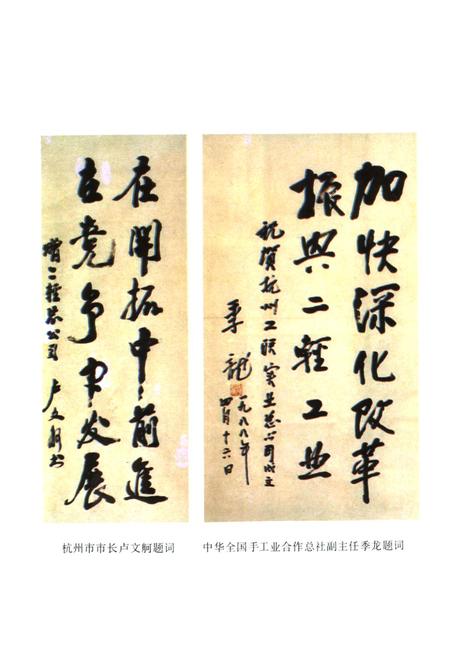 在開拓中前進
在竞争中发展
赠二轻总公司
卢文舸书
杭州市市长卢文舸题词
加快深化改革
振興二轻工业
祝贺杭州工联实业总公司成立
季龍
一九八八年
四月十六日
中华全国手工业合作总社副主任季龙题词